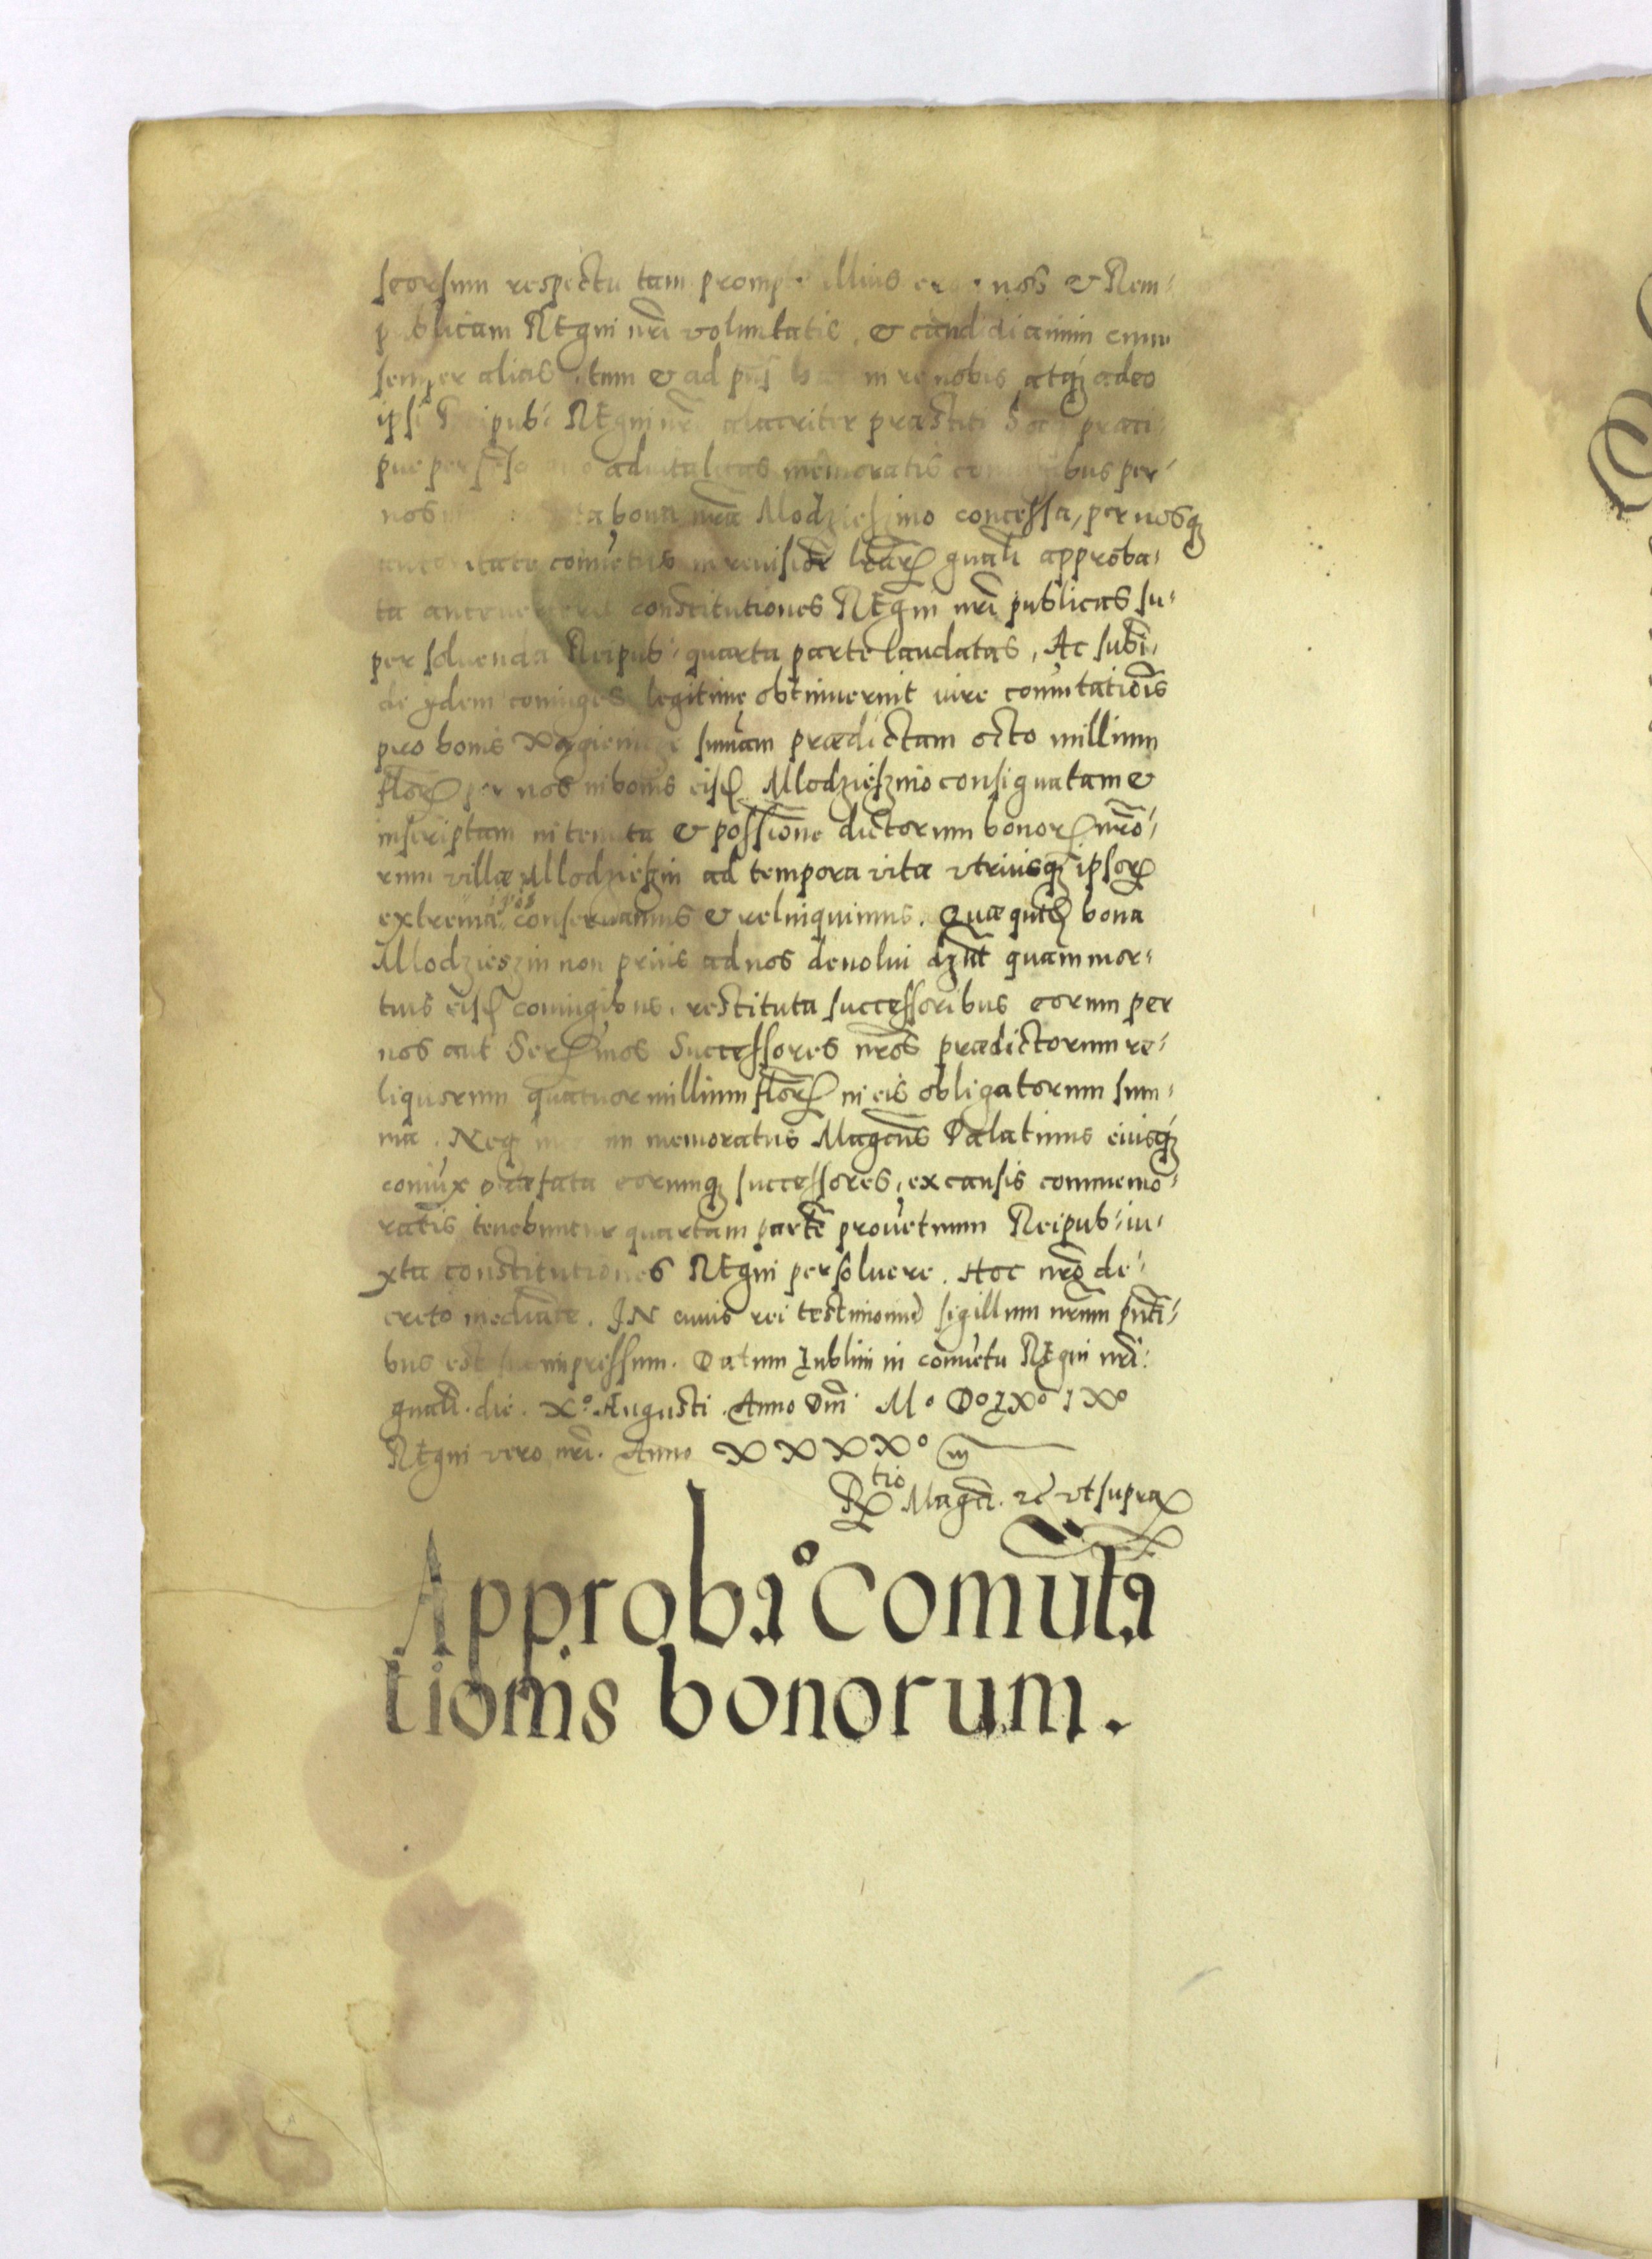 seorsum respectu tam prompte illius erga nos & Rem-
publicam Regni nri voluntatis, & candidi animi cum
semper alias, tum & ad pns in re nobis atq adeo
ipsi Reipub: Regni nri alacriter præstiti. Hac præci-
pue aduitalitas memoratis coniugibus per-
nos bona nra Mlodzieszino concessa, per nosq
autoritate conuetus in reuisioe lrarum gnali approba-
ta anteuerterit constitutiones Regni nri publicas su-
per soluenda Reipub: quarta parte laudatas, Ac subin-
de ydem coniuges legitime obtinuerint iure comutatiois
pro bonis sumam prædictam octo millium
florum per nos in bonis eisd Mlodzieszino consignatam &
inscriptam in tenuta & possione dictorum bonorum nro-
rum villæ Mlodzieszin ad tempora vitæ vtriusq ipsorum
extrema ipos conseruamus & relinquimus. Quæ quid bona
Mlodzieszin non prius ad nos deuolui dzut quam mor-
tuis eisd coniugibus, restituta successoribus eorum per
nos aut Sermos Successores nros prædictorum re-
liquorum quatuor millium florum in eis obligatorum sum-
ma. Neq memoratus Magcus Palatinus eiusq
coniux præfata eorumq successores, ex causis commemo-
ratis tenebuntur quartam parte prouetuum Reipub: iu-
xta constitutiones Regni persoluere. Hoc nro de-
creto mediante. IN cuius rei testimoniu sigillum nrum pnti-
bus est impressum. Datum Lublini in conuetu Regni nri
gnali. die. X° Augusti. Anno Dni M° D° LX° IX°
Regni vero nri. Anno XXXX°
Rtio Magci. rc vt supra
Approba° Comuta
tionis bonorum.